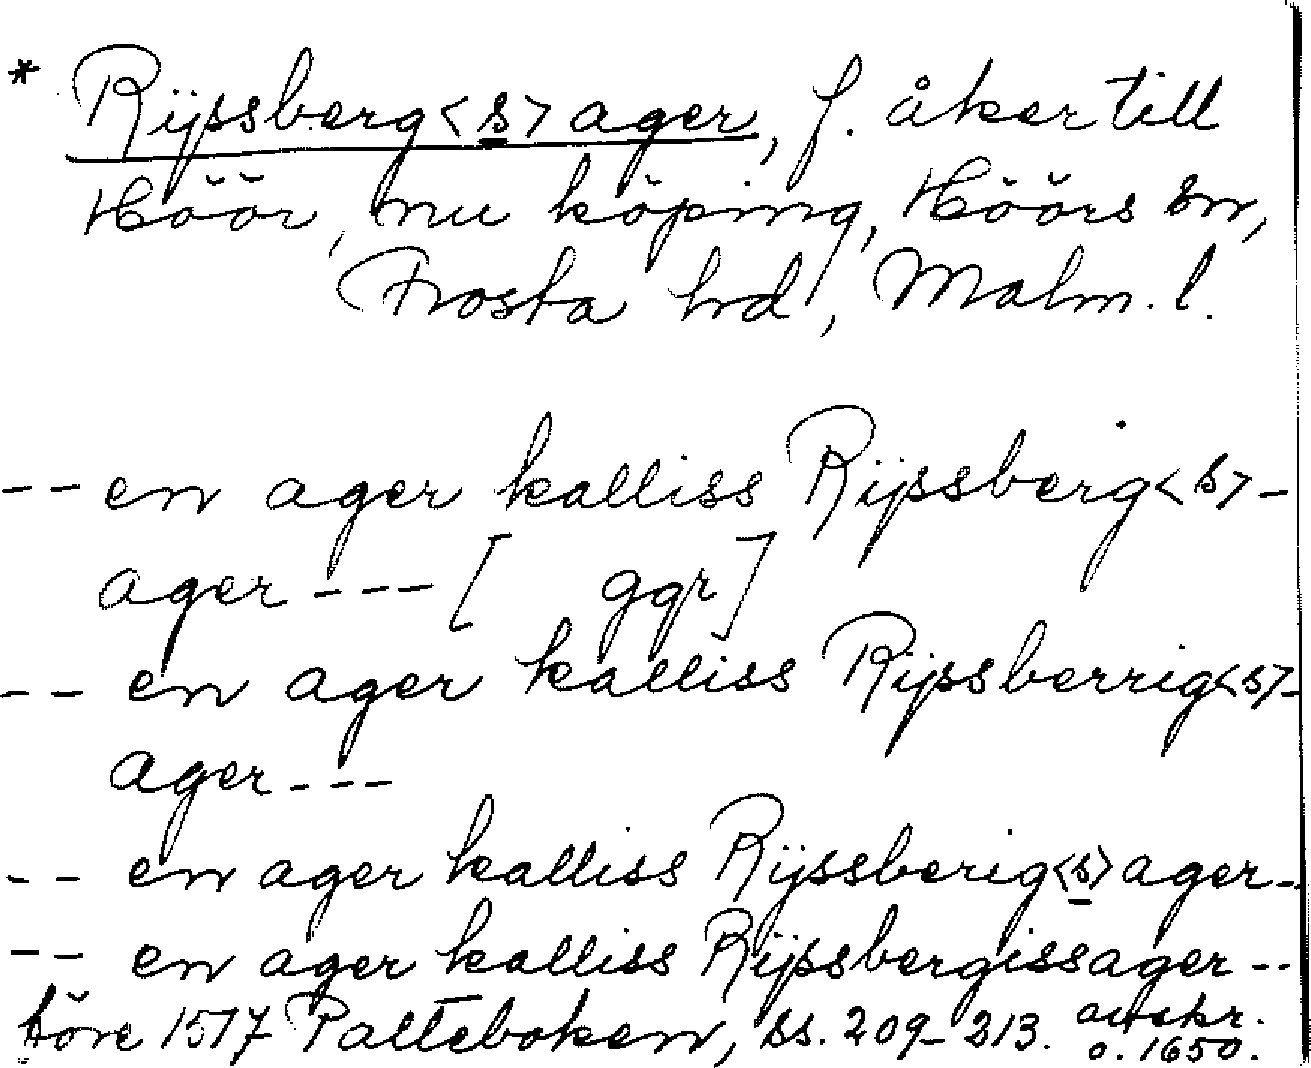 * Rijssberg<s>ager, f. åker till
Höör, nu köping, Höörs sn,
Frosta hrd, Malm. l.
-- en ager kalliss Rijssberg<s>-
ager --- [ ggr]
-- en ager kalliss Rijssberrig<s>-
ager ---
-- en ager kalliss Rijssberig<s>ager--
-- en ager kalliss Rijssbergissager --
före 1517 Palteboken, ss. 209-213. avskr.
o. 1650.